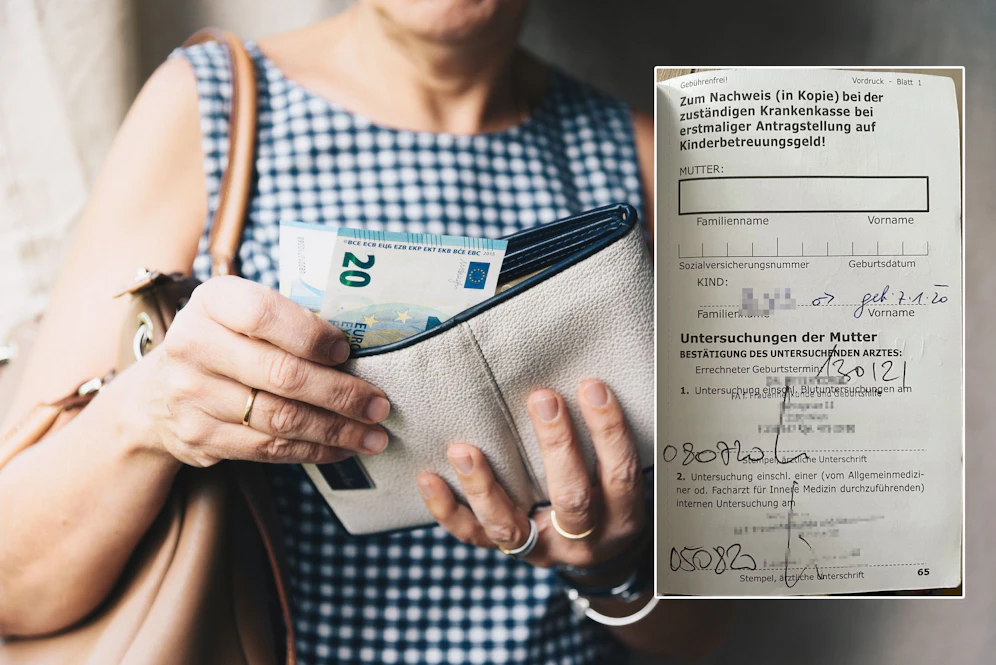 "BCE ECB ЕЦБ EZB EKP EKT EKB BĊE EBC 2015
20
EURO
Gebührenfrei!
Vordruck - Blatt 1
Zum Nachweis (in Kopie) bei der
zuständigen Krankenkasse bei
erstmaliger Antragstellung auf
Kinderbetreuungsgeld!
MUTTER:
Familienname Vorname
Sozialversicherungsnummer Geburtsdatum
KIND:
geb. 7.1.20
Vorname
Untersuchungen der Mutter
BESTÄTIGUNG DES UNTERSUCHENDEN ARZTES:
Errechneter Geburtstermin: 130121
1. Untersuchung einschl. Blutuntersuchungen am
FA f. Frauenheilkunde und Geburtshilfe
080720
Stempel, ärztliche Unterschrift
2. Untersuchung einschl. einer (vom Allgemeinmedizi-
ner od. Facharzt für Innere Medizin durchzuführenden)
internen Untersuchung am
050820
Stempel, ärztliche Unterschrift
65